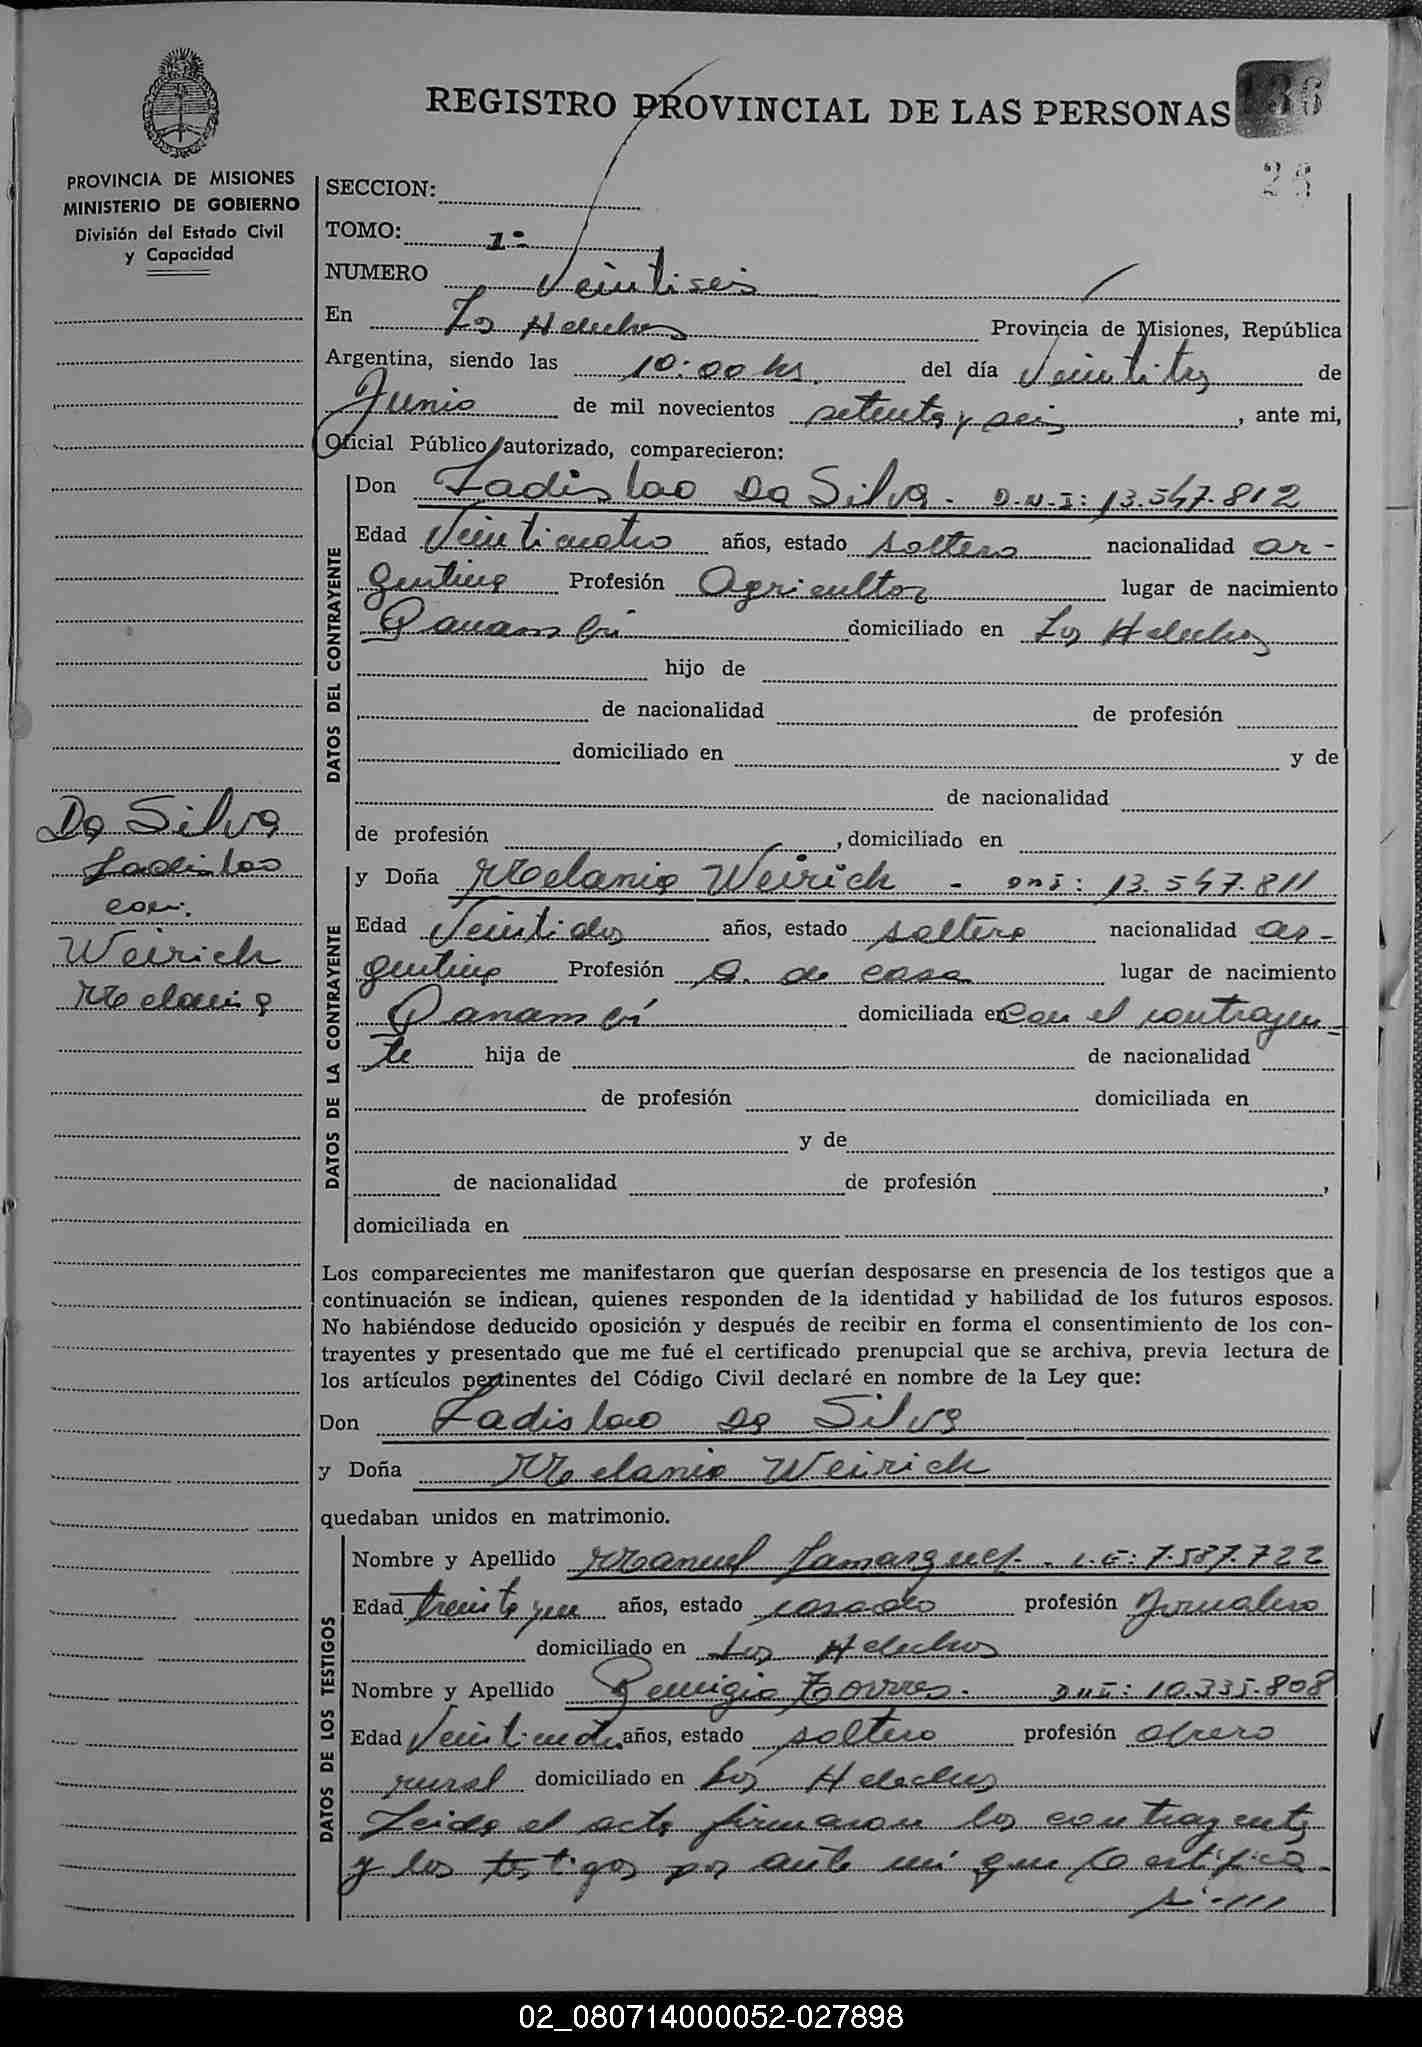 REGISTRO PROVINCIAL DE LAS PERSONAS 136
26
PROVINCIA DE MISIONES
MINISTERIO DE GOBIERNO
División del Estado Civil
y Capacidad
SECCION:
TOMO: 1º
NUMERO Veintiseis
En Los Helechos Provincia de Misiones, República
Argentina, siendo las 10:00 hs. del día Veintitres de
Junio de mil novecientos setenta y seis, ante mi,
Oficial Público autorizado, comparecieron:
DATOS DEL CONTRAYENTE
Don Ladislao Da Silva - D.N.I: 13.547.812
Edad Veinticuatro años, estado soltero nacionalidad ar-
gentina Profesión Agricultor lugar de nacimiento
Panambí domiciliado en Los Helechos
hijo de
de nacionalidad de profesión
domiciliado en y de
de nacionalidad
de profesión , domiciliado en
Da Silva
Ladislao
con.
Weirich
Melania
DATOS DE LA CONTRAYENTE
y Doña Melania Weirich - DNI: 13.547.811
Edad Veintidos años, estado soltera nacionalidad ar-
gentina Profesión A. de casa lugar de nacimiento
Panambí domiciliada en Con el contrayen-
te hija de de nacionalidad
de profesión domiciliada en
y de
de nacionalidad de profesión ,
domiciliada en
Los comparecientes me manifestaron que querían desposarse en presencia de los testigos que a
continuación se indican, quienes responden de la identidad y habilidad de los futuros esposos.
No habiéndose deducido oposición y después de recibir en forma el consentimiento de los con-
trayentes y presentado que me fué el certificado prenupcial que se archiva, previa lectura de
los artículos pertinentes del Código Civil declaré en nombre de la Ley que:
Don Ladislao Da Silva
y Doña Melania Weirich
quedaban unidos en matrimonio.
DATOS DE LOS TESTIGOS
Nombre y Apellido Manuel - L.E: 7.587.722
Edad treinta y un años, estado casado profesión Jornalero
domiciliado en Los Helechos
Nombre y Apellido Remigio Torres - DNI: 10.335.808
Edad años, estado soltero profesión obrero
rural domiciliado en Los Helechos
Leida el acta firmaron los contrayentes
y los testigos por ante mi que Certifica
02_080714000052-027898